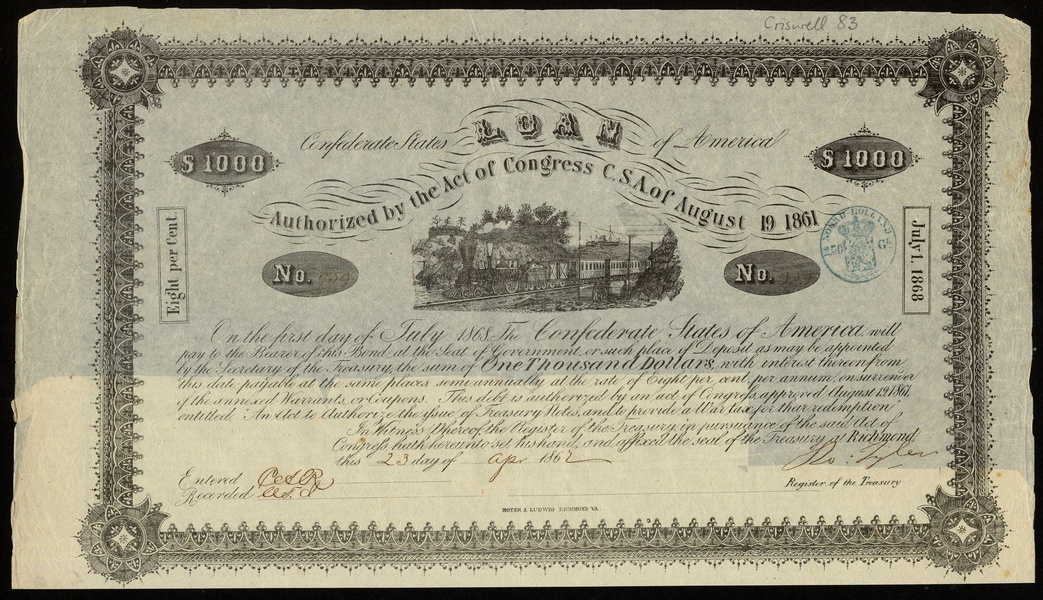 Criswell 83
Confederate States LOAN of America
$1000 $1000
Authorized by the Act of Congress C.S.A. of August 19 1861
Eight per Cent.
July 1, 1868
No. No.
On the first day of July 1868, The Confederate States of America will
pay to the Bearer of this Bond, at the Seat of Government, or such place of Deposit as may be appointed
by the Secretary of the Treasury, the sum of One Thousand Dollars, with interest thereon from
this date payable at the same places semi-annually at the rate of Eight per cent per annum, on surrender
of the annexed Warrants, or Coupons. This debt is authorized by an act of Congress, approved August 19, 1861,
entitled "An Act to Authorize the issue of Treasury Notes, and to provide a War tax for their redemption"
In Witness Whereof the Register of the Treasury, in pursuance of the said Act of
Congress, hath hereunto set his hand, and affixed the seal of the Treasury at Richmond
this 23 day of apr 1862
Ro: Tyler
Entered
Register of the Treasury
Recorded
HOYER & LUDWIG RICHMOND VA.